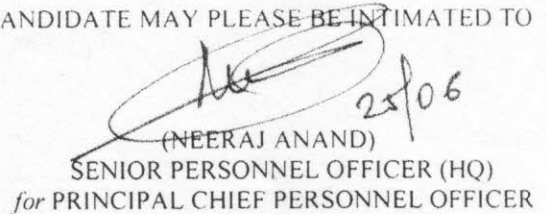 ANDIDATE MAY PLEASE BE INTIMATED TO
25/06
(NEERAJ ANAND)
SENIOR PERSONNEL OFFICER (HQ)
for PRINCIPAL CHIEF PERSONNEL OFFICER